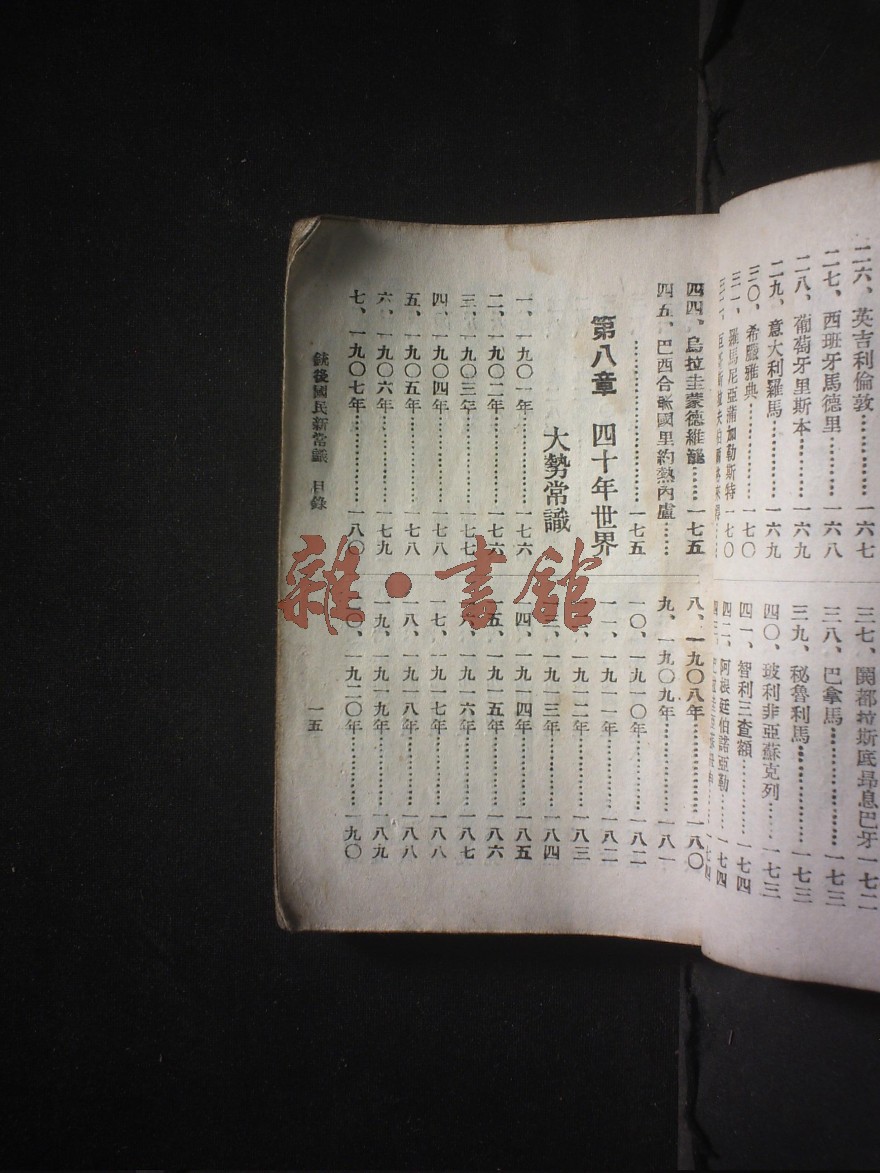 二六、英吉利倫敦…………一六七
二七、西班牙馬德里………一六八
二八、葡萄牙里斯本………一六九
二九、意大利羅馬…………一六九
三〇、希臘雅典……………一七〇
三一、羅馬尼亞蒲加勒斯特 一七〇
三七、閎都拉斯底昂息巴牙 一七二
三八、巴拿馬………………一七三
三九、秘魯利馬……………一七三
四〇、玻利非亞蘇克列……一七三
四一、智利三查額…………一七四
四二、阿根廷伯諾亞勒……一七四
四四、烏拉圭蒙德維……一七五
四五、巴西合衆國里約熱內盧……
………………………一七五
第八章 四十年世界
大勢常識
一、一九〇一年……………一七六
二、一九〇二年……………一七六
三、一九〇三年……………一七七
四、一九〇四年……………一七八
五、一九〇五年……………一七八
六、一九〇六年……………一七九
七、一九〇七年……………一八〇
八、一九〇八年……………一八〇
九、一九〇九年……………一八一
一〇、一九一〇年…………一八二
一一、一九一一年…………一八二
一二、一九一二年…………一八三
一三、一九一三年…………一八四
一四、一九一四年…………一八五
一五、一九一五年…………一八六
一六、一九一六年…………一八七
一七、一九一七年…………一八八
一八、一九一八年…………一八八
一九、一九一九年…………一八九
二〇、一九二〇年…………一九〇
銃後國民新常識 目錄
一五
雜·書館